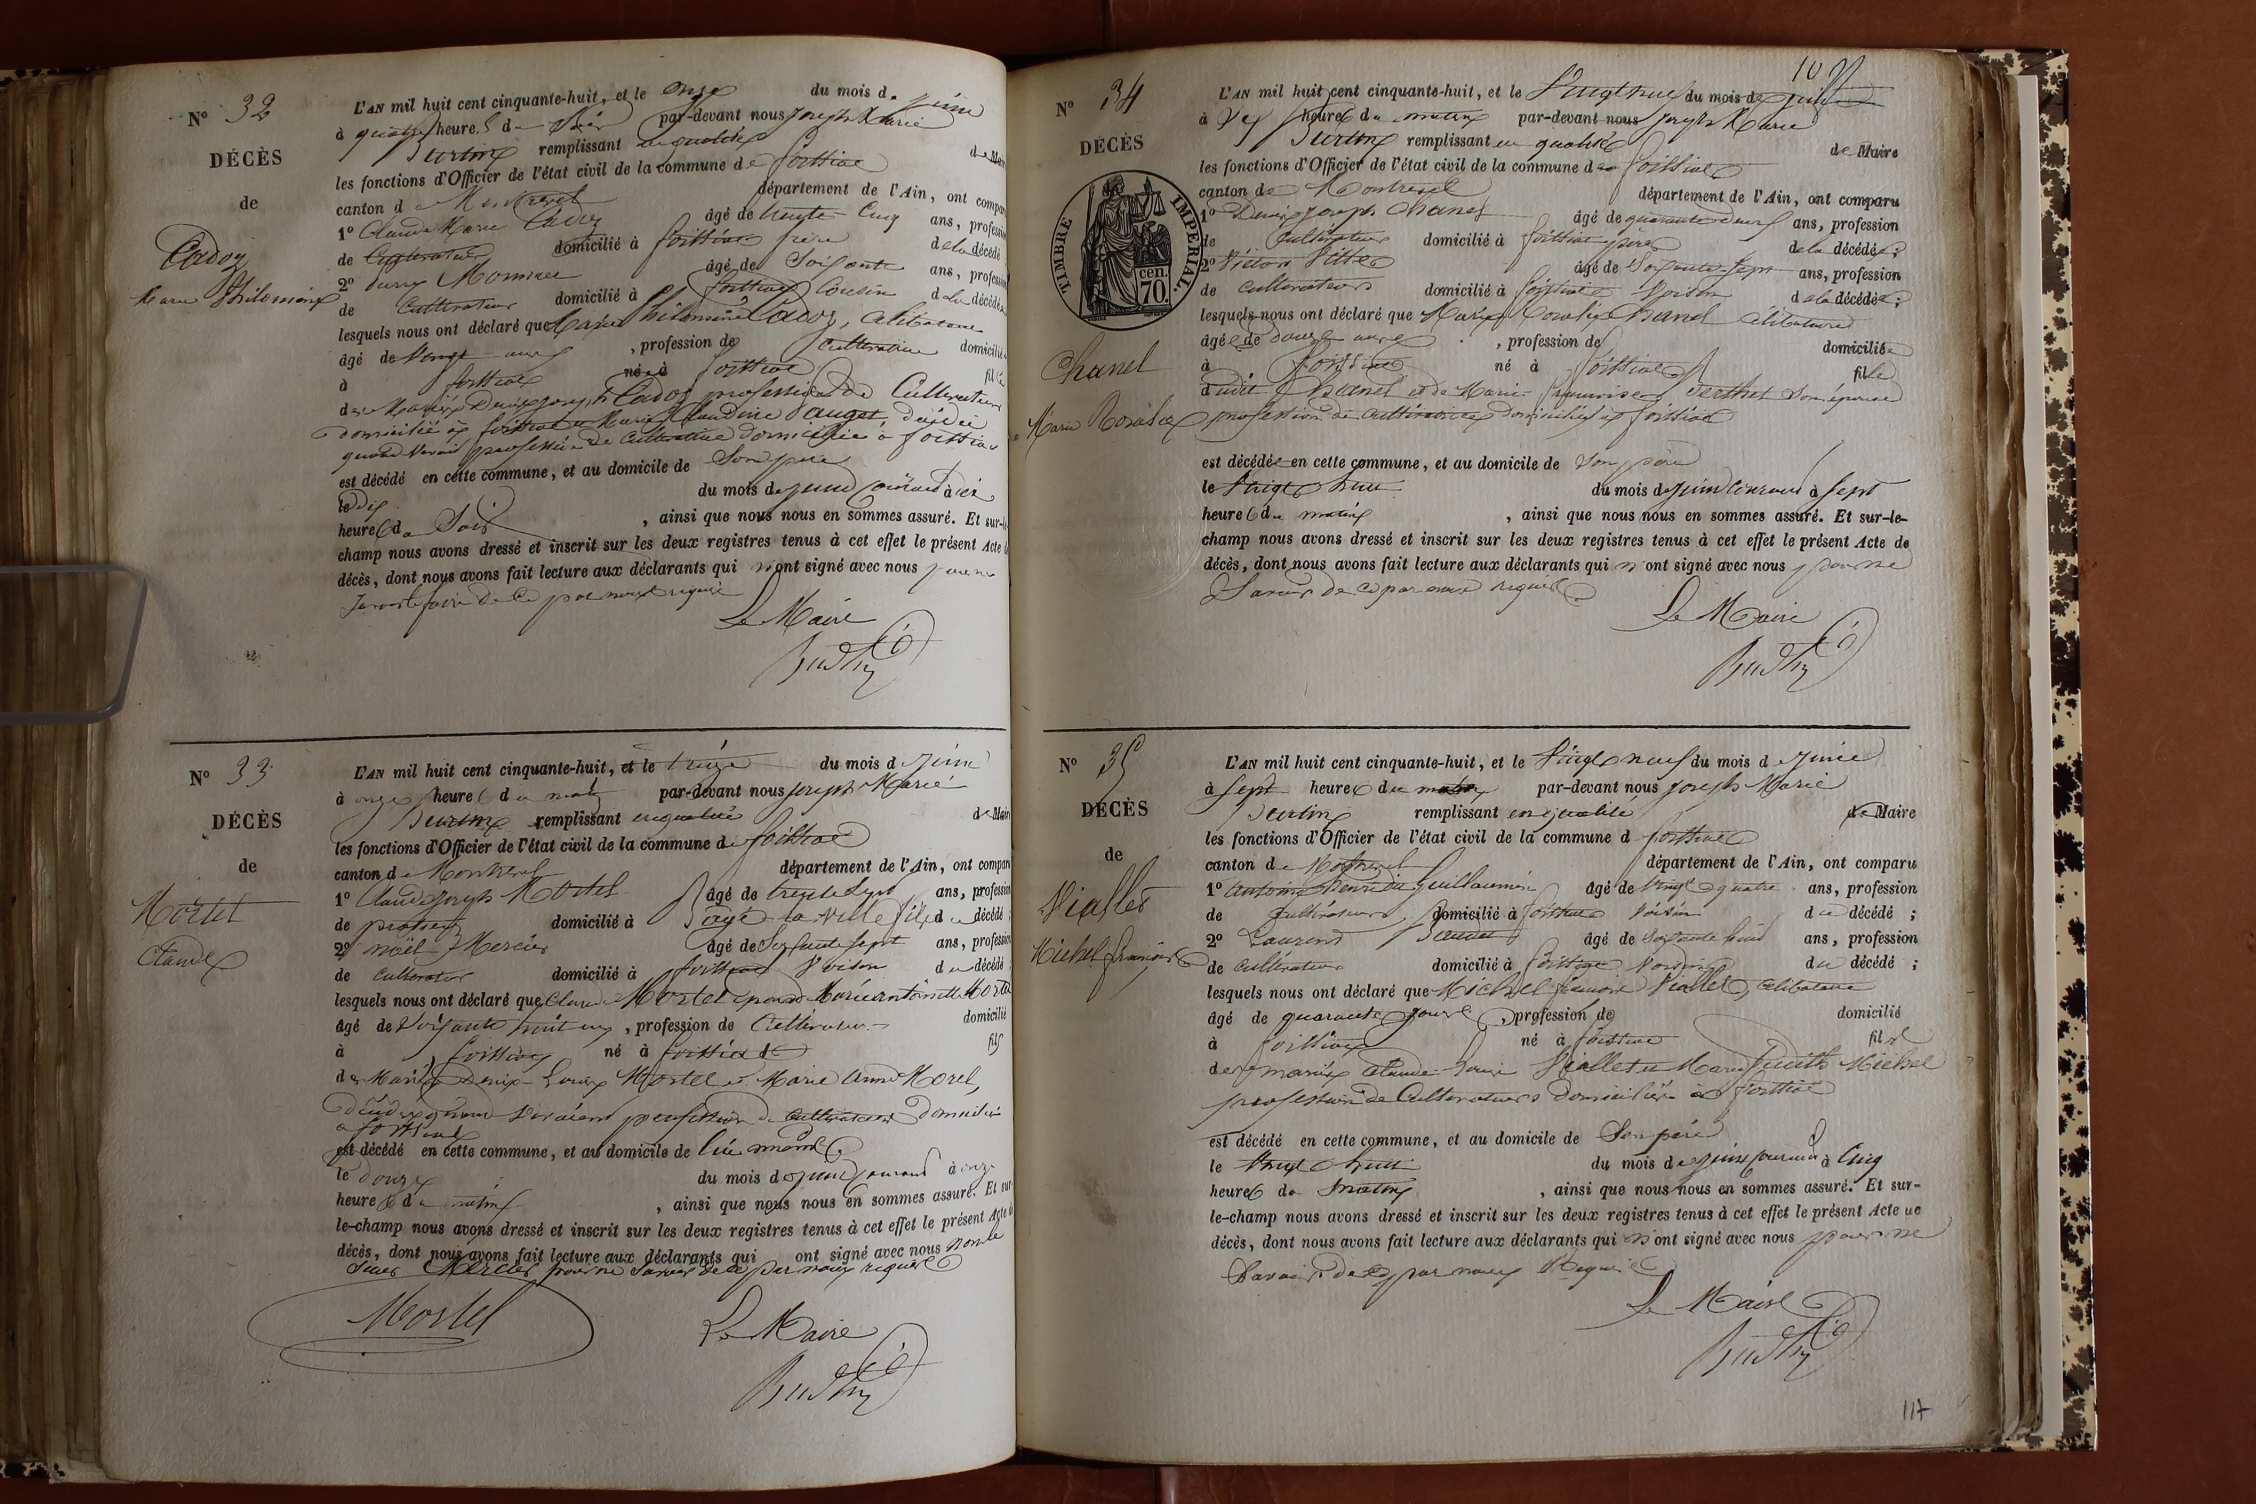 Nº 32
DÉCÈS
de
Cadoz
Marie Philomène
L'AN mil huit cent cinquante-huit, et le onze du mois de juin
à quatre heures du soir par-devant nous Joseph Marie
remplissant en qualité de Maire
les fonctions d'Officier de l'état civil de la commune de foissiat
canton de Montrevel département de l'Ain, ont comparu
1º Claude Marie Cadoz âgé de trente-cinq ans, profession
de Cultivateur domicilié à foissiat frère de la décédée
2º Monnier âgé de soixante ans, profession
de Cultivateur domicilié à foissiat cousin de la décédée
lesquels nous ont déclaré que Marie Philomène Cadoz, célibataire
âgé de ans, profession de Cultivatrice domicilié
à foissiat né à foissiat fille
des Mariés Denis Joseph Cadoz profession de Cultivateur
domicilié à foissiat et Marie Claudine décédée
quand vivait profession de Cultivatrice domiciliée à foissiat
est décédé en cette commune, et au domicile de son père
le dix du mois de juin courant à
heures du soir, ainsi que nous nous en sommes assuré. Et sur-le-
champ nous avons dressé et inscrit sur les deux registres tenus à cet effet le présent Acte de
décès, dont nous avons fait lecture aux déclarants qui n'ont signé avec nous pour ne
savoir le faire de ce par nous requis
Le Maire
Nº 33
DÉCÈS
de
Mortel
Claude
L'AN mil huit cent cinquante-huit, et le treize du mois de juin
à onze heures du matin par-devant nous Joseph Marie
remplissant en qualité de Maire
les fonctions d'Officier de l'état civil de la commune de foissiat
canton de Montrevel département de l'Ain, ont comparu
1º Claude Joseph Mortel âgé de trente sept ans, profession
de domicilié à Bagé-la-Ville fils du décédé ;
2º Noël Mercier âgé de soixante sept ans, profession
de Cultivateur domicilié à foissiat voisin du décédé
lesquels nous ont déclaré que Claude Mortel époux de Marie antoinette
âgé de soixante huit ans, profession de Cultivateur domicilié
à foissiat né à foissiat fils
des Mariés Denis Louis Mortel et Marie Anne Morel,
décédés quand vivaient profession de cultivateurs domiciliés
à foissiat
est décédé en cette commune, et au domicile de lui même
le douze du mois de juin courant à onze
heures du matin, ainsi que nous nous en sommes assuré. Et sur-
le-champ nous avons dressé et inscrit sur les deux registres tenus à cet effet le présent Acte de
décès, dont nous avons fait lecture aux déclarants qui ont signé avec nous non le
sieur Mercier pour ne savoir de ce par nous requis
Mortel
Le Maire
Nº 34
DÉCÈS
TIMBRE IMPERIAL.
cen.
70.
Chanel
Marie Rosalie
L'AN mil huit cent cinquante-huit, et le vingt huit du mois de juin
à dix heures du matin par-devant nous Joseph Marie
remplissant en qualité de Maire
les fonctions d'Officier de l'état civil de la commune de foissiat
canton de Montrevel département de l'Ain, ont comparu
1º Denis Joseph Chanel âgé de quarante deux ans, profession
de Cultivateur domicilié à foissiat père de la décédée ;
2º Victor âgé de soixante-sept ans, profession
de Cultivateur domicilié à foissiat voisin de la décédée ;
lesquels nous ont déclaré que Marie Rosalie Chanel célibataire
âgée de douze ans, profession de domiciliée
à foissiat né à foissiat fille
dudit Chanel et de Marie Françoise Berthet son épouse
profession de cultivatrice domiciliés à foissiat
est décédée en cette commune, et au domicile de son père
le vingt huit du mois de juin courant à sept
heures du matin, ainsi que nous nous en sommes assuré. Et sur-le-
champ nous avons dressé et inscrit sur les deux registres tenus à cet effet le présent Acte de
décès, dont nous avons fait lecture aux déclarants qui n'ont signé avec nous pour ne
savoir de ce par nous requis
Le Maire
Nº 35
DÉCÈS
de
Viallet
Michel françois
L'AN mil huit cent cinquante-huit, et le vingt neuf du mois de juin
à sept heures du matin par-devant nous Joseph Marie
remplissant en qualité de Maire
les fonctions d'Officier de l'état civil de la commune de foissiat
canton de Montrevel département de l'Ain, ont comparu
1º Antoine Guillaumin âgé de vingt quatre ans, profession
de Cultivateur domicilié à foissiat voisin du décédé ;
2º Laurent âgé de soixante huit ans, profession
de Cultivateur domicilié à foissiat voisin du décédé ;
lesquels nous ont déclaré que Michel françois Viallet, célibataire
âgé de quarante jours, profession de domicilié
à foissiat né à foissiat fils
des mariés Claude Louis Viallet et Marie Judith Michel
profession de Cultivateurs domiciliés à foissiat
est décédé en cette commune, et au domicile de son père
le vingt huit du mois de juin courant à cinq
heures du matin, ainsi que nous nous en sommes assuré. Et sur-
le-champ nous avons dressé et inscrit sur les deux registres tenus à cet effet le présent Acte de
décès, dont nous avons fait lecture aux déclarants qui n'ont signé avec nous pour ne
savoir de ce par nous requis
Le Maire
117